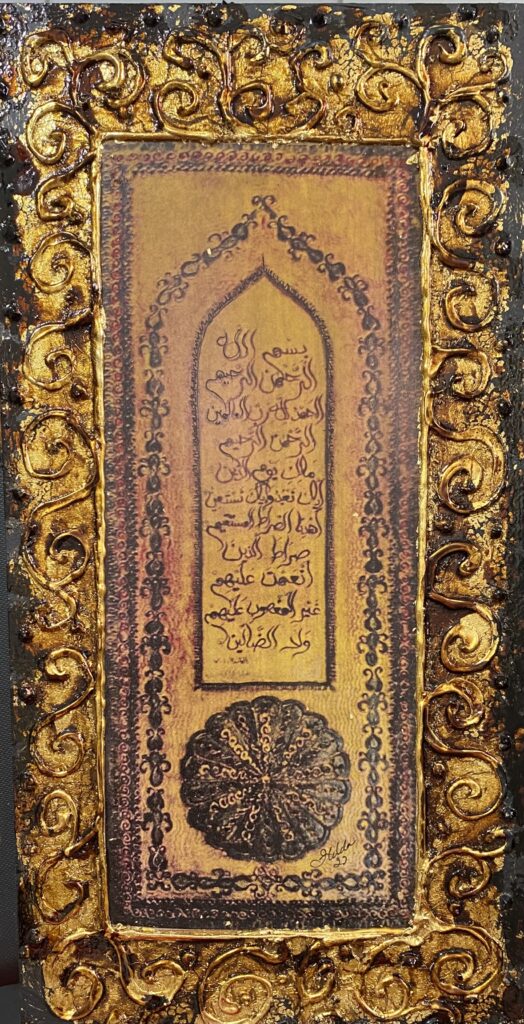 بسم الله
الرحمن الرحيم
الحمد لله رب العالمين
الرحمن الرحيم
مالك يوم الدين
اياك نعبد واياك نستعين
اهدنا الصراط المستقيم
صراط الذين
أنعمت عليهم
غير المغضوب عليهم
ولا الضالين